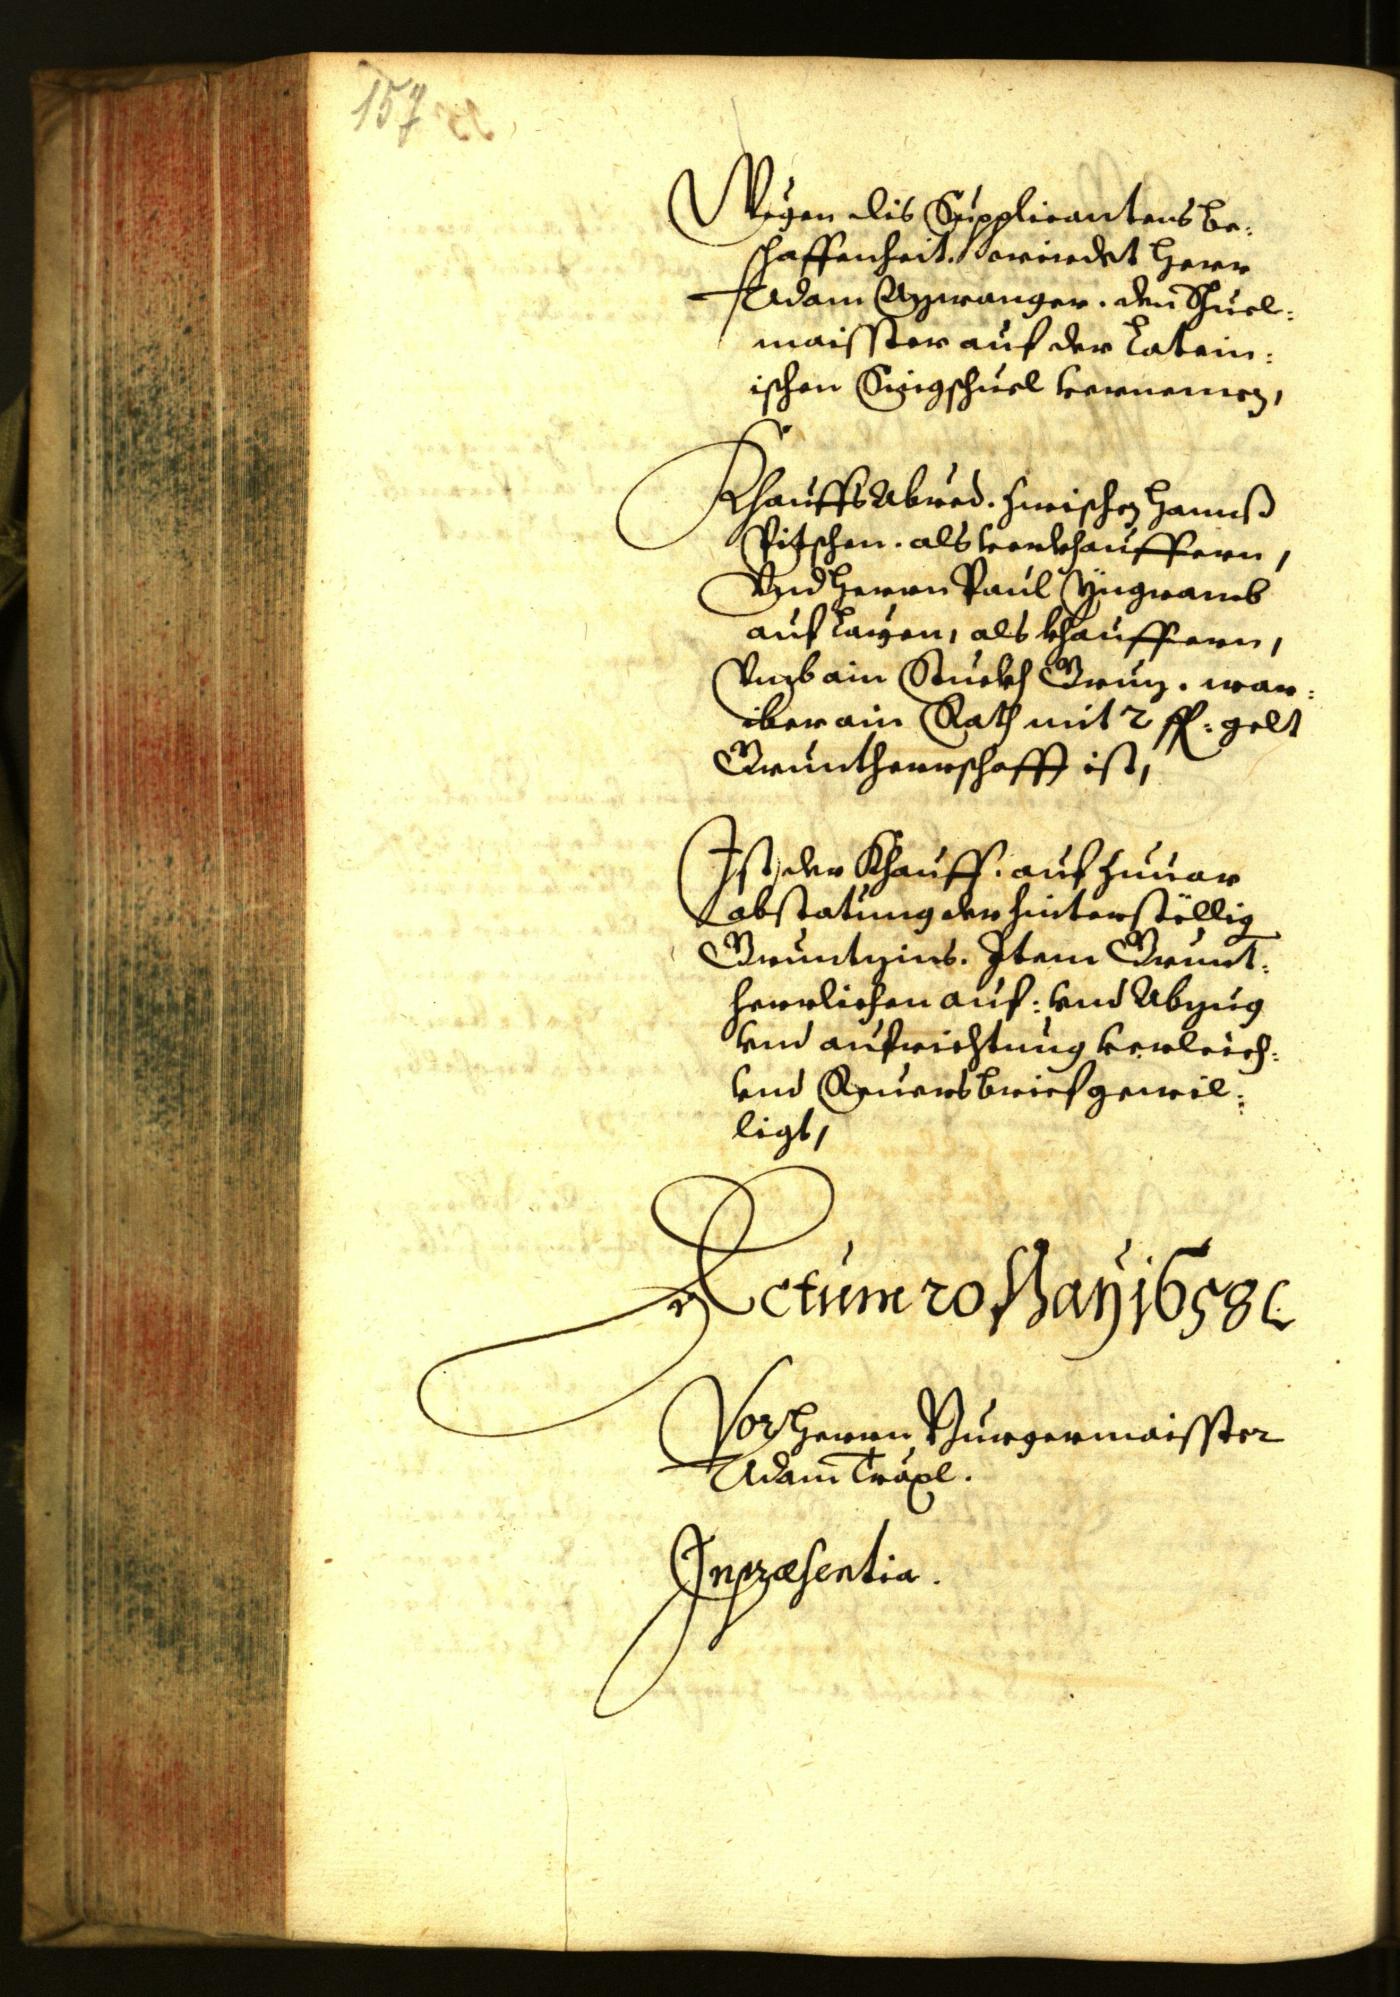 157
Wegen dis Supplicantens be:
schaffenheit. wirdet Herr
Adam Azwanger. den Schuel:
maisster auf der Latein:
ischen Singschuel vernemen,
Khauffs Abred. zwischen Hannß
Pitschen. als verkhauffern,
Vnd Herrn Paul Yngramb
auf Layen, als khauffern,
Vmb ain Stuckh Grunz. war:
iber ain Rath mit 2 ff: gelt
Gruntherrschafft ist,
Ist der Khauff. auf zuuor
abstatung der hinterstellig
Gruntzins. Item Grunt:
herrlichen auf: vnd Abzug
vnd aufrichtung verleich:
vnd Reuersbrief gewil:
ligt,
Actum 20 May 1658
Vor Herrn Burgermaisster
Adam Träxl.
In præsentia.